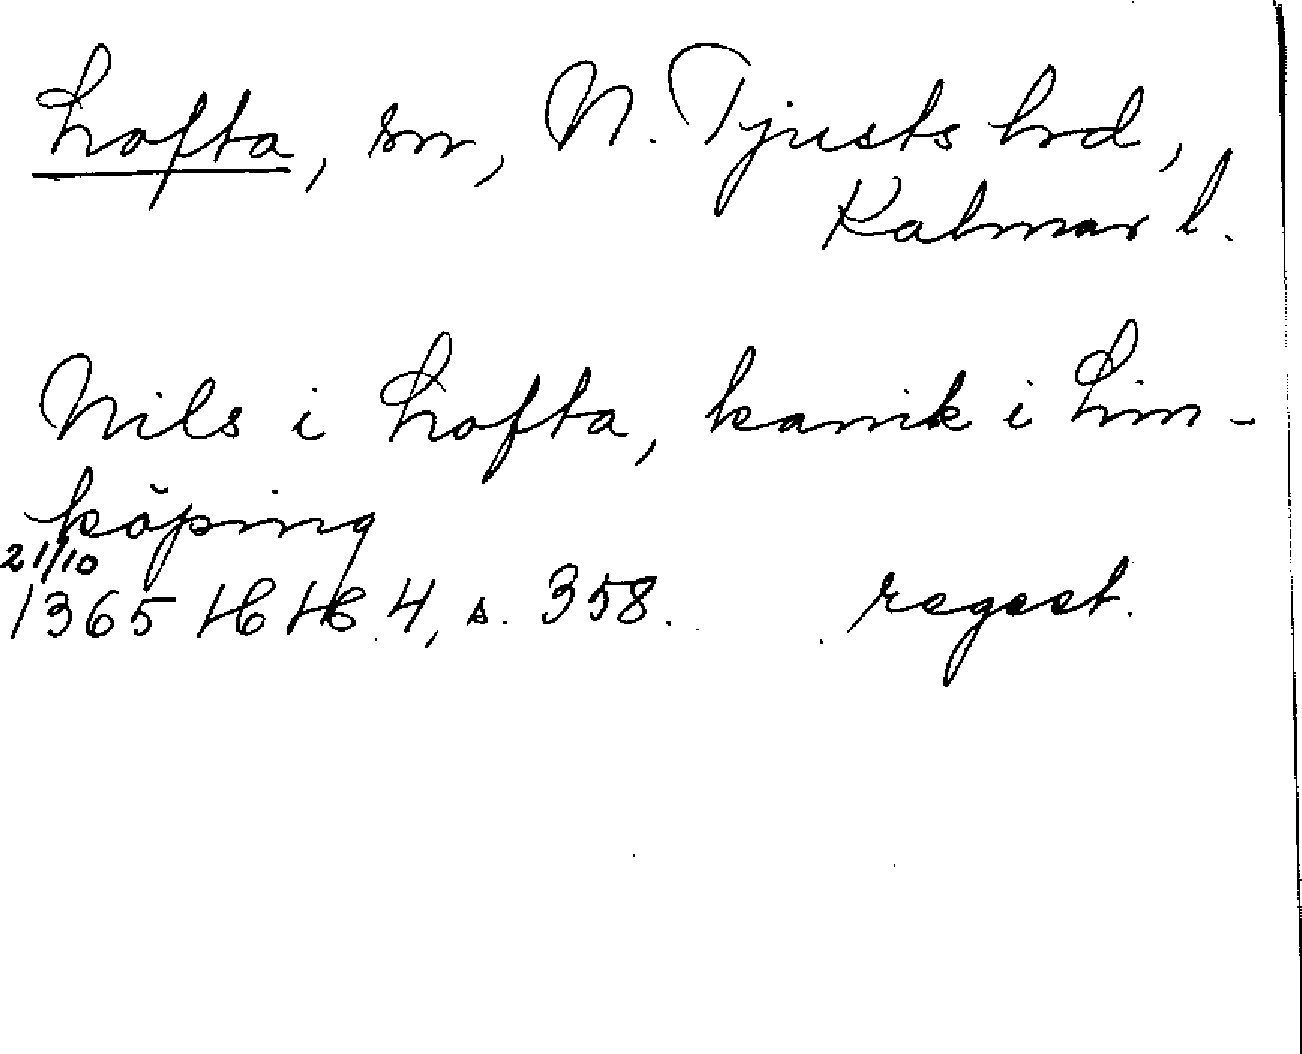 Lofta, sn, N. Tjusts hrd,
Kalmar l.
Nils i Lofta, kanik i Lin-
köping
21/10
1365 HH 4, s. 358. regest.